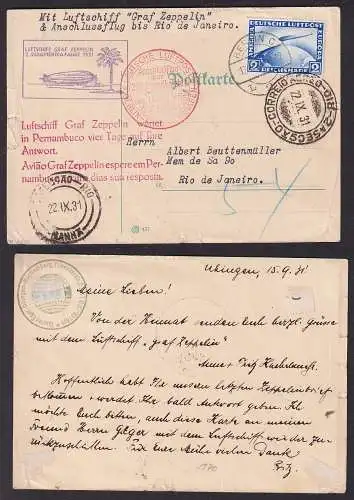 Mit Luftschiff "Graf Zeppelin"
& Anschlussflug bis Rio de Janeiro.
LUFTSCHIFF GRAF ZEPPELIN
2. SÜDAMERIKAFAHRT 1931
Postkarte
DEUTSCHE LUFTPOST
2
Luftschiff Graf Zeppelin wartet
in Pernambuco vier Tage auf Ihre
Antwort.
Avião Graf Zeppelin espera em Per-
nambuco dias sua resposta.
22.IX.31
Herrn
Albert Beuttenmüller
Mem de Sa 80
Rio de Janeiro.
22 IX. 31
MANHÃ
Uhingen, 15.9.31
Meine Lieben!
Von der Heimat senden Euch herzl. Grüsse
mit dem Luftschiff „Graf Zeppelin"
Hoffentlich habt Ihr unseren letzten Zeppelinbrief
bekommen & werdet Ihr bald Antwort geben. Ich
möchte Euch bitten, auch diese Karte an meinen
Freund Herrn mit dem Luftschiff wieder zu-
rückzuschicken. Für Eure Mühe vielen Dank
Fritz.